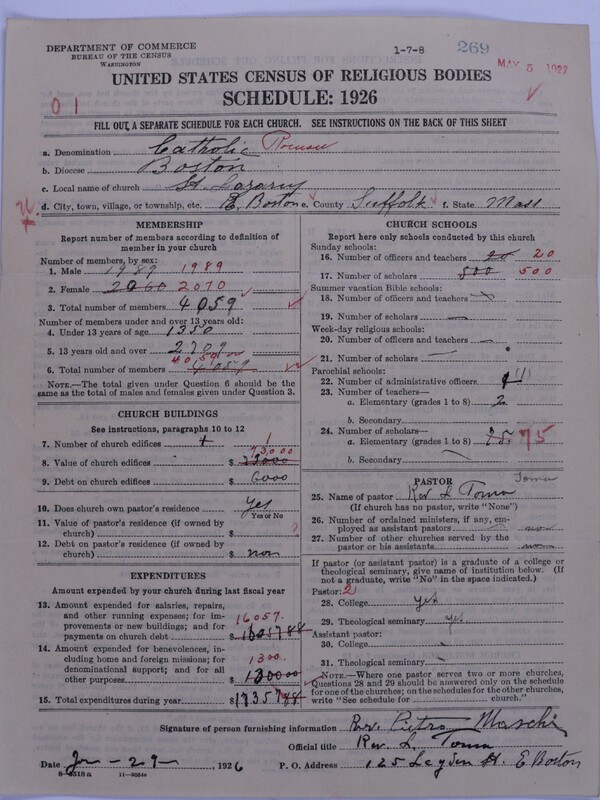 DEPARTMENT OF COMMERCE
BUREAU OF THE CENSUS
WASHINGTON
1-7-8
269
MAY 5 1927
UNITED STATES CENSUS OF RELIGIOUS BODIES
SCHEDULE: 1926
01
FILL OUT A SEPARATE SCHEDULE FOR EACH CHURCH. SEE INSTRUCTIONS ON THE BACK OF THIS SHEET
a. Denomination Catholic Roman
b. Diocese Boston
c. Local name of church St. Lazarus
d. City, town, village, or township, etc. E. Boston e. County Suffolk f. State Mass
MEMBERSHIP
Report number of members according to definition of
member in your church
Number of members, by sex:
1. Male 1989 1989
2. Female 2060 2070
3. Total number of members 4059
Number of members under and over 13 years old:
4. Under 13 years of age 1350
5. 13 years old and over 2709
4059
6. Total number of members 4059
NOTE.—The total given under Question 6 should be
the same as the total of males and females given under Question 3.
CHURCH BUILDINGS
See instructions, paragraphs 10 to 12
7. Number of church edifices 1
73,000
8. Value of church edifices $
9. Debt on church edifices $ 6000
10. Does church own pastor's residence? Yes
Yes or No
11. Value of pastor's residence (if owned by
church) $ ?
12. Debt on pastor's residence (if owned by
church) $ non
EXPENDITURES
Amount expended by your church during last fiscal year
13. Amount expended for salaries, repairs,
and other running expenses; for im-
provements or new buildings; and for
payments on church debt $
16057.
14. Amount expended for benevolences,
including home and foreign missions; for
denominational support; and for all
other purposes $
1300.
15. Total expenditures during year $
CHURCH SCHOOLS
Report here only schools conducted by this church
Sunday schools:
16. Number of officers and teachers 20 20
17. Number of scholars 500 500
Summer vacation Bible schools:
18. Number of officers and teachers —
19. Number of scholars —
Week-day religious schools:
20. Number of officers and teachers —
21. Number of scholars —
Parochial schools:
22. Number of administrative officers 1
23. Number of teachers—
a. Elementary (grades 1 to 8) 2
b. Secondary
24. Number of scholars—
a. Elementary (grades 1 to 8) 75
b. Secondary —
PASTOR
Toma
25. Name of pastor Rev. L. Toma
(If church has no pastor, write "None")
26. Number of ordained ministers, if any, em-
ployed as assistant pastors
27. Number of other churches served by the
pastor or his assistants
If pastor (or assistant pastor) is a graduate of a college or
theological seminary, give name of institution below. (If
not a graduate, write "No" in the space indicated.)
Pastor: 2
28. College yes
29. Theological seminary yes
Assistant pastor:
30. College —
31. Theological seminary —
NOTE.—Where one pastor serves two or more churches,
Questions 28 and 29 should be answered only on the schedule
for one of the churches; on the schedules for the other churches,
write "See schedule for church."
Signature of person furnishing information Rev. Pietro Maschi
Official title Rev. L. Toma
Date Jan - 29 -, 1926 P. O. Address 125 Leyden St. E Boston